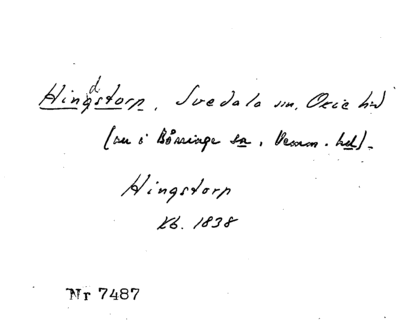 Hindgstorp, Svedala sn, Oxie hd
(nu i Börringe sn, Vemm. hd).
Hingstorp
Kb. 1838
Nr 7487